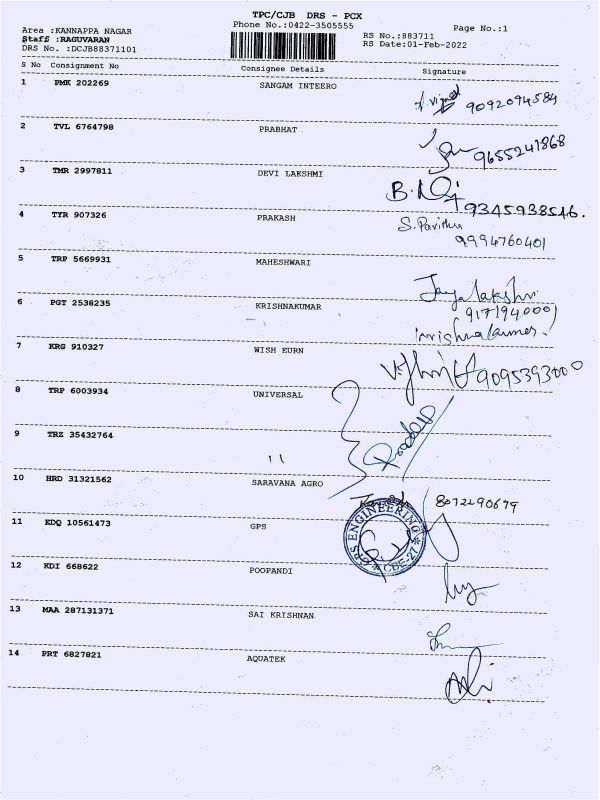 TPC/CJB DRS - PCX
Area :KANNAPPA NAGAR Phone No.:0422-3505555 Page No.:1
Staff :RAGUVARAN RS No.:883711
DRS No. :DCJB88371101 RS Date:01-Feb-2022
S No Consignment No Consignee Details Signature
1 PMK 202269 SANGAM INTEERO
9092094584
2 TVL 6764798 PRABHAT
9655241868
3 TMR 2997811 DEVI LAKSHMI
9345938546.
4 TYR 907326 PRAKASH S. Pavithra
9994760401
5 TRP 5669931 MAHESHWARI
Jayalakshmi
6 PGT 2538235 KRISHNAKUMAR 9171940001
7 KRG 910327 WISH EURN
9095393000
8 TRP 6003934 UNIVERSAL
9 TRZ 35432764 ''
10 HRD 31321562 SARAVANA AGRO
8072290679
11 KDQ 10561473 GPS
ENGINEERING
CBE-27
12 KDI 668622 POOPANDI
13 MAA 287131371 SAI KRISHNAN
14 PRT 6827821 AQUATEK